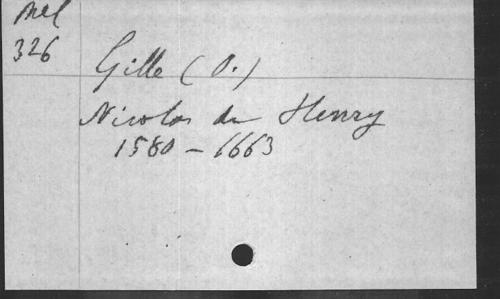 Mel
326
Gille (O.)
Nicolas du Henry
1580 - 1663